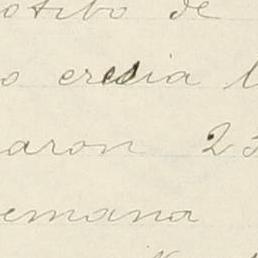 otibo de
o eresia l
aron 23
emana